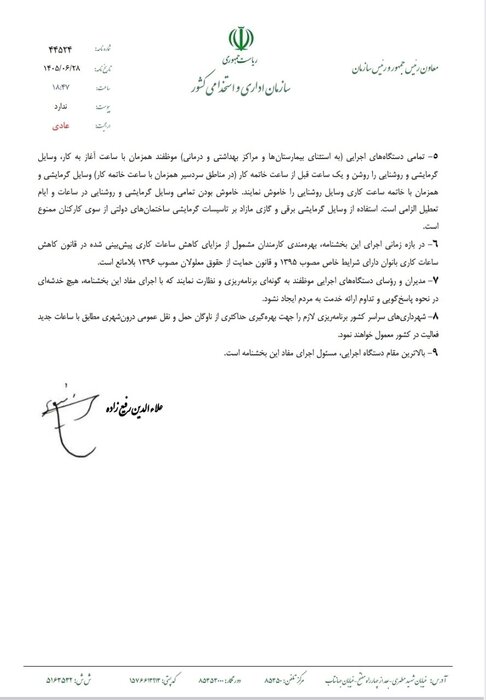 ریاست جمهوری
سازمان اداری و استخدامی کشور
معاون رئیس جمهور و رئیس سازمان
شماره نامه: ۴۴۵۲۴
تاریخ نامه: ۱۴۰۵/۰۶/۲۸
ساعت: ۱۸:۴۷
پیوست: ندارد
عادی
۵- تمامی دستگاه‌های اجرایی (به استثنای بیمارستان‌ها و مراکز بهداشتی و درمانی) موظفند همزمان با ساعت آغاز به کار، وسایل
گرمایشی و روشنایی را روشن و یک ساعت قبل از ساعت خاتمه کار (در مناطق سردسیر همزمان با ساعت خاتمه کار) وسایل گرمایشی و
همزمان با خاتمه ساعت کاری وسایل روشنایی را خاموش نمایند. خاموش بودن تمامی وسایل گرمایشی و روشنایی در ساعات و ایام
تعطیل الزامی است. استفاده از وسایل گرمایشی برقی و گازی مازاد بر تاسیسات گرمایشی ساختمان‌های دولتی از سوی کارکنان ممنوع
است.
۶- در بازه زمانی اجرای این بخشنامه، بهره‌مندی کارمندان مشمول از مزایای کاهش ساعات کاری پیش‌بینی شده در قانون کاهش
ساعات کاری بانوان دارای شرایط خاص مصوب ۱۳۹۵ و قانون حمایت از حقوق معلولان مصوب ۱۳۹۶ بلامانع است.
۷- مدیران و رؤسای دستگاه‌های اجرایی موظفند به گونه‌ای برنامه‌ریزی و نظارت نمایند که با اجرای مفاد این بخشنامه، هیچ خدشه‌ای
در نحوه پاسخ‌گویی و تداوم ارائه خدمت به مردم ایجاد نشود.
۸- شهرداری‌های سراسر کشور برنامه‌ریزی لازم را جهت بهره‌گیری حداکثری از ناوگان حمل و نقل عمومی درون‌شهری مطابق با ساعات جدید
فعالیت در کشور معمول خواهند نمود.
۹- بالاترین مقام دستگاه اجرایی، مسئول اجرای مفاد این بخشنامه است.
علاءالدین رفیع زاده
آدرس: خیابان شهید مطهری، بعد از چهارراه مفتح، خیابان مهتاب مرکز تلفن: ۸۵۳۵۰ دورنگار: ۸۵۳۵۲۰۰۰ کد پستی: ۱۵۷۶۶۱۳۲۱۳ ش ش: ۵۱۶۲۵۳۲